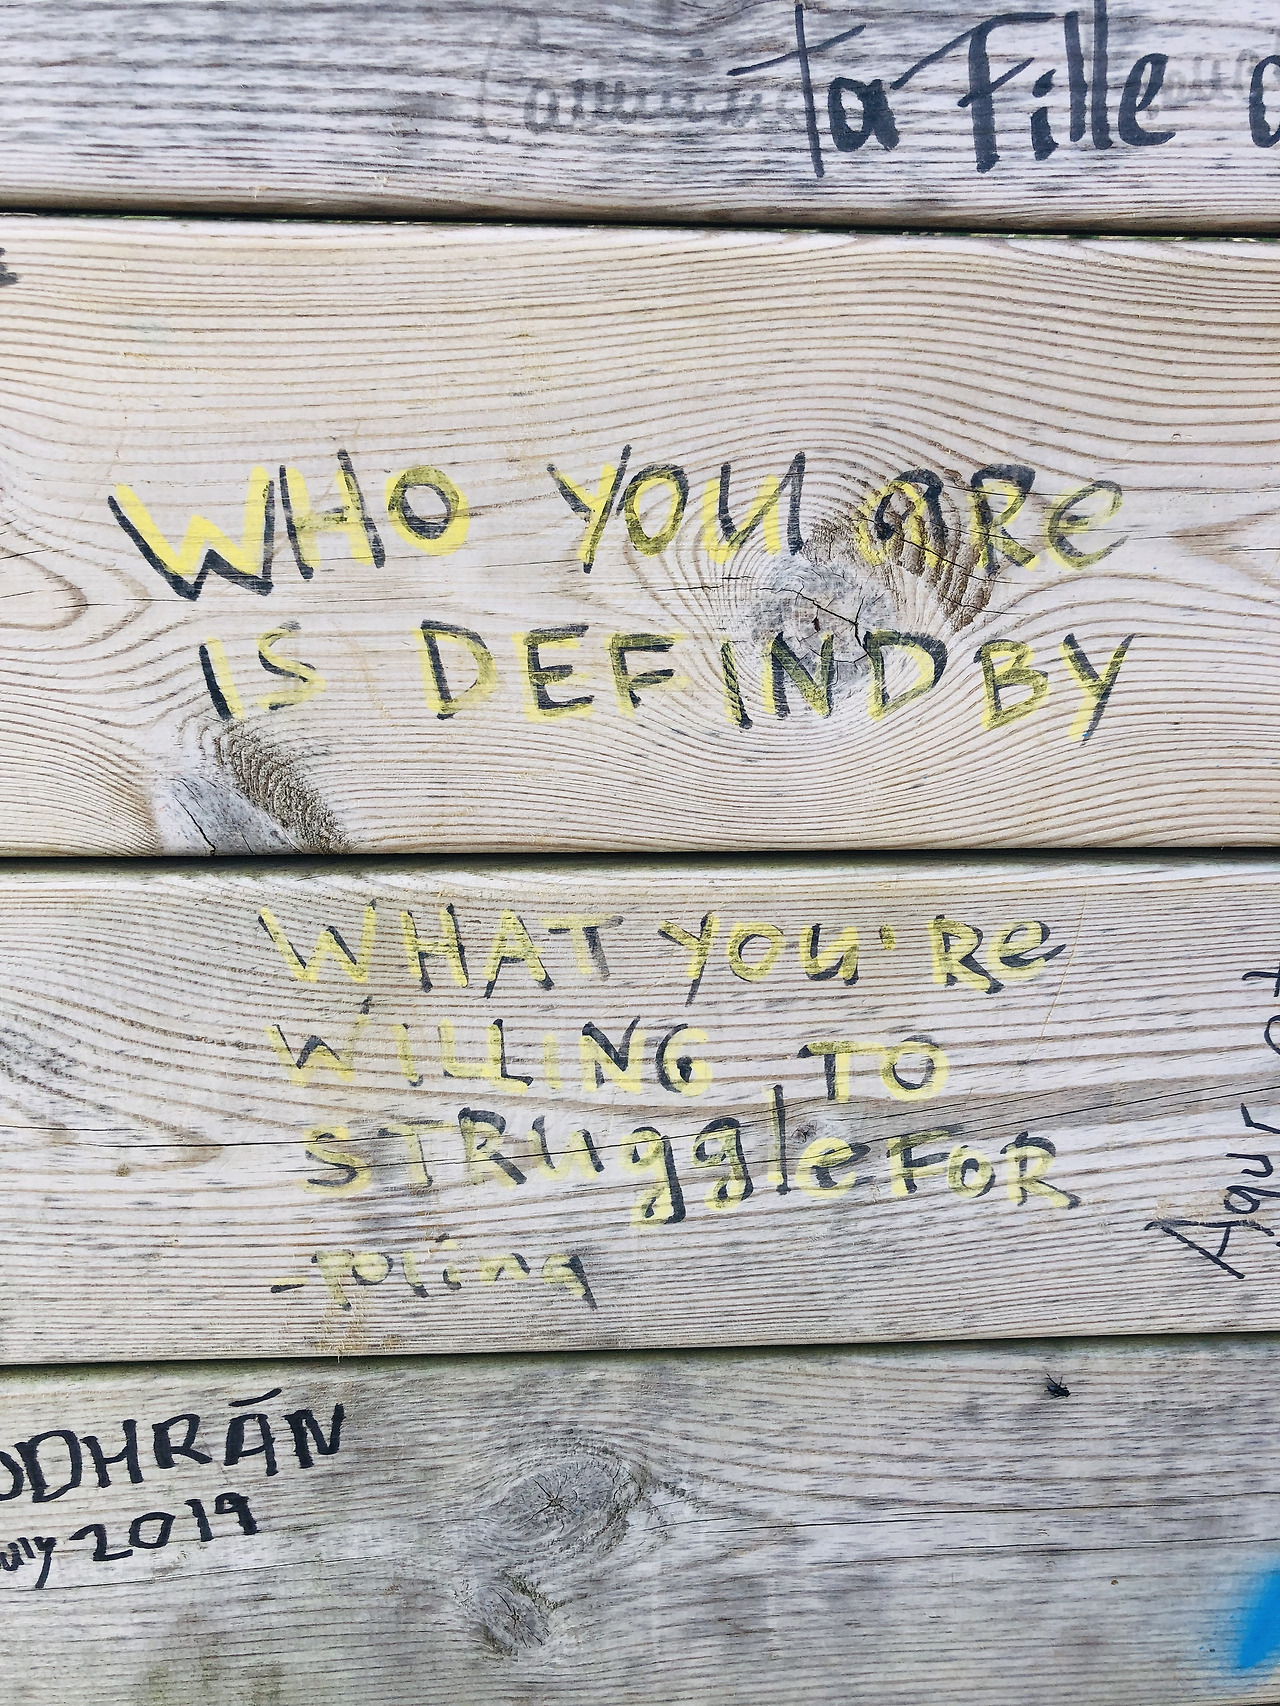 Ta Fille
WHO YOU aRe
IS DEFIND BY
WHAT YOU'Re
WILLING TO
STRuggle FOR
ODHRĀN
July 2019